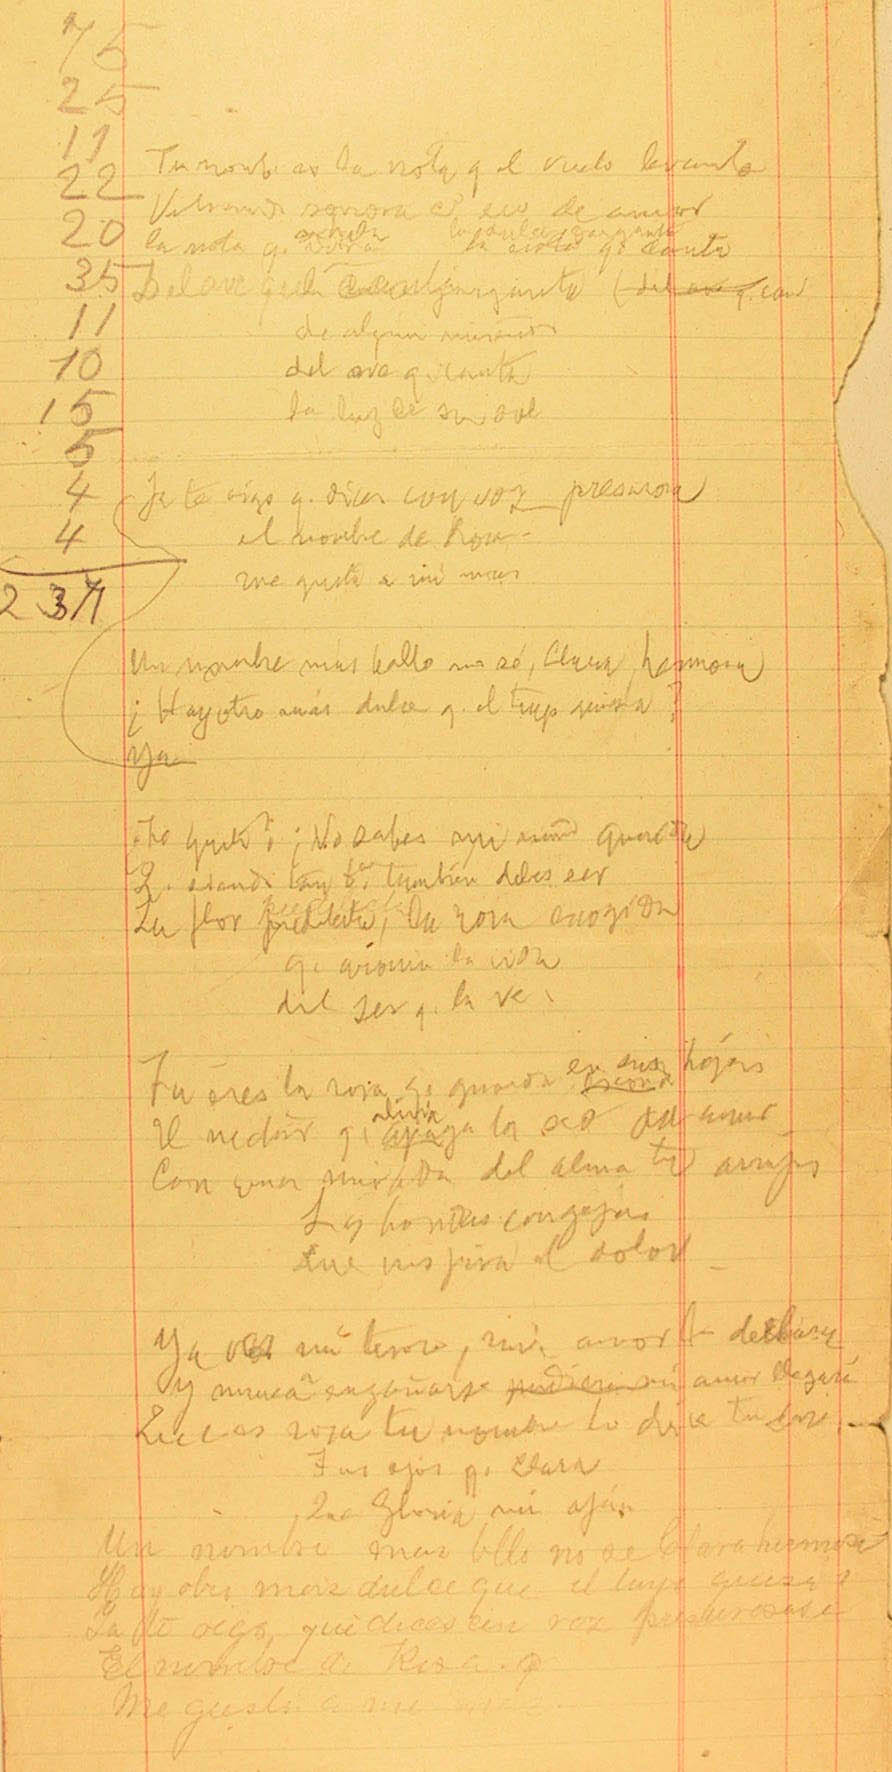 75
25
11
22
20
35
11
10
15
5
4
4
237
Tu nomb. es la nota q. el vuelo levanta
Vibrando sonora el eco de amor
la nota q. q. canta
Del ave garganta (del ave q. can
de algun
del ave q. canta
la luz de su sol
Ya te oigo q. dices con voz presurosa
el nombre de Rosa
me gusta a mi mas
Un nombre más bello no sé, Clara hermosa
¿Hay otro más dulce q. el tuyo quiza?
Ya
¿No sabes mi querida
Q. siendo también debes ser
La flor predilecta, la rosa escogida
q. aroma la vida
del ser q. la ve.
Tu eres la rosa q. guarda en sus hojas
El nectar q. alivia apaga la sed de amor
Con una mirada del alma tu arrojas
Las hondas congojas
Que inspira el dolor
Ya ves mi tesoro, mi amor te declara
Y nunca engañarse pudiera mi amor llegará
Que es rosa tu nombre lo dice tu cara
Tus ojos q. Clara
Que Gloria mi afán
Un nombre mas bello no se Clara hermosa
Hay otro mas dulce que el tuyo quiza
Ya te oigo que dices con voz presurosa
El nombre de Rosa
Me gusta a mi mas